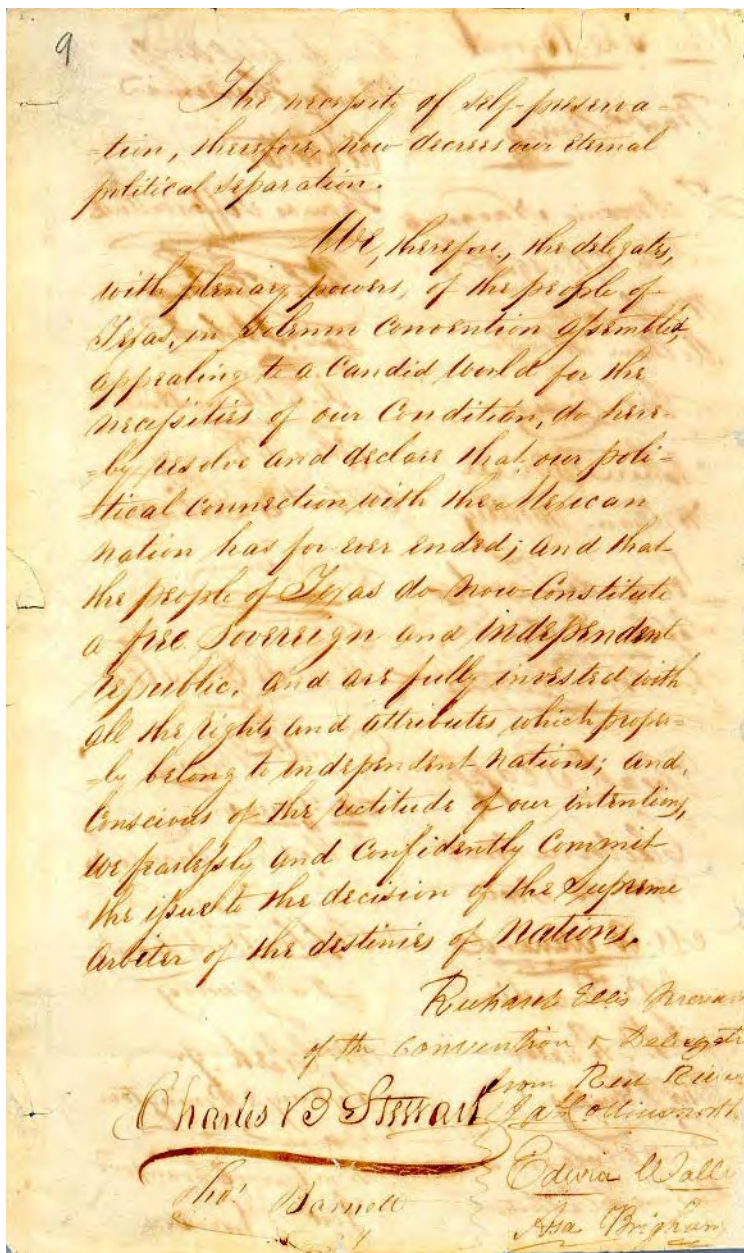 9
The necessity of self-preserva-
-tion, therefore, now decrees our eternal
political separation.
We, therefore, the delegates,
with plenary powers, of the people of
Texas, in Solemn Convention assembled,
appealing to a Candid World for the
necessities of our Condition, do here-
-by resolve and declare that our poli-
-tical connection with the Mexican
nation has for ever ended; and that
the people of Texas do now Constitute
a free Sovereign and independent
republic, and are fully invested with
all the rights and attributes which proper-
-ly belong to independent Nations; and,
Conscious of the rectitude of our intentions,
we fearlessly and Confidently Commit
the issue to the decision of the Supreme
arbiter of the destinies of Nations.
Richard Ellis
of the Convention & Delegate
from Red River
Charles B Stewart
Jas Collinsworth
Edwin Walle
Thos Barnett
Asa Brigham